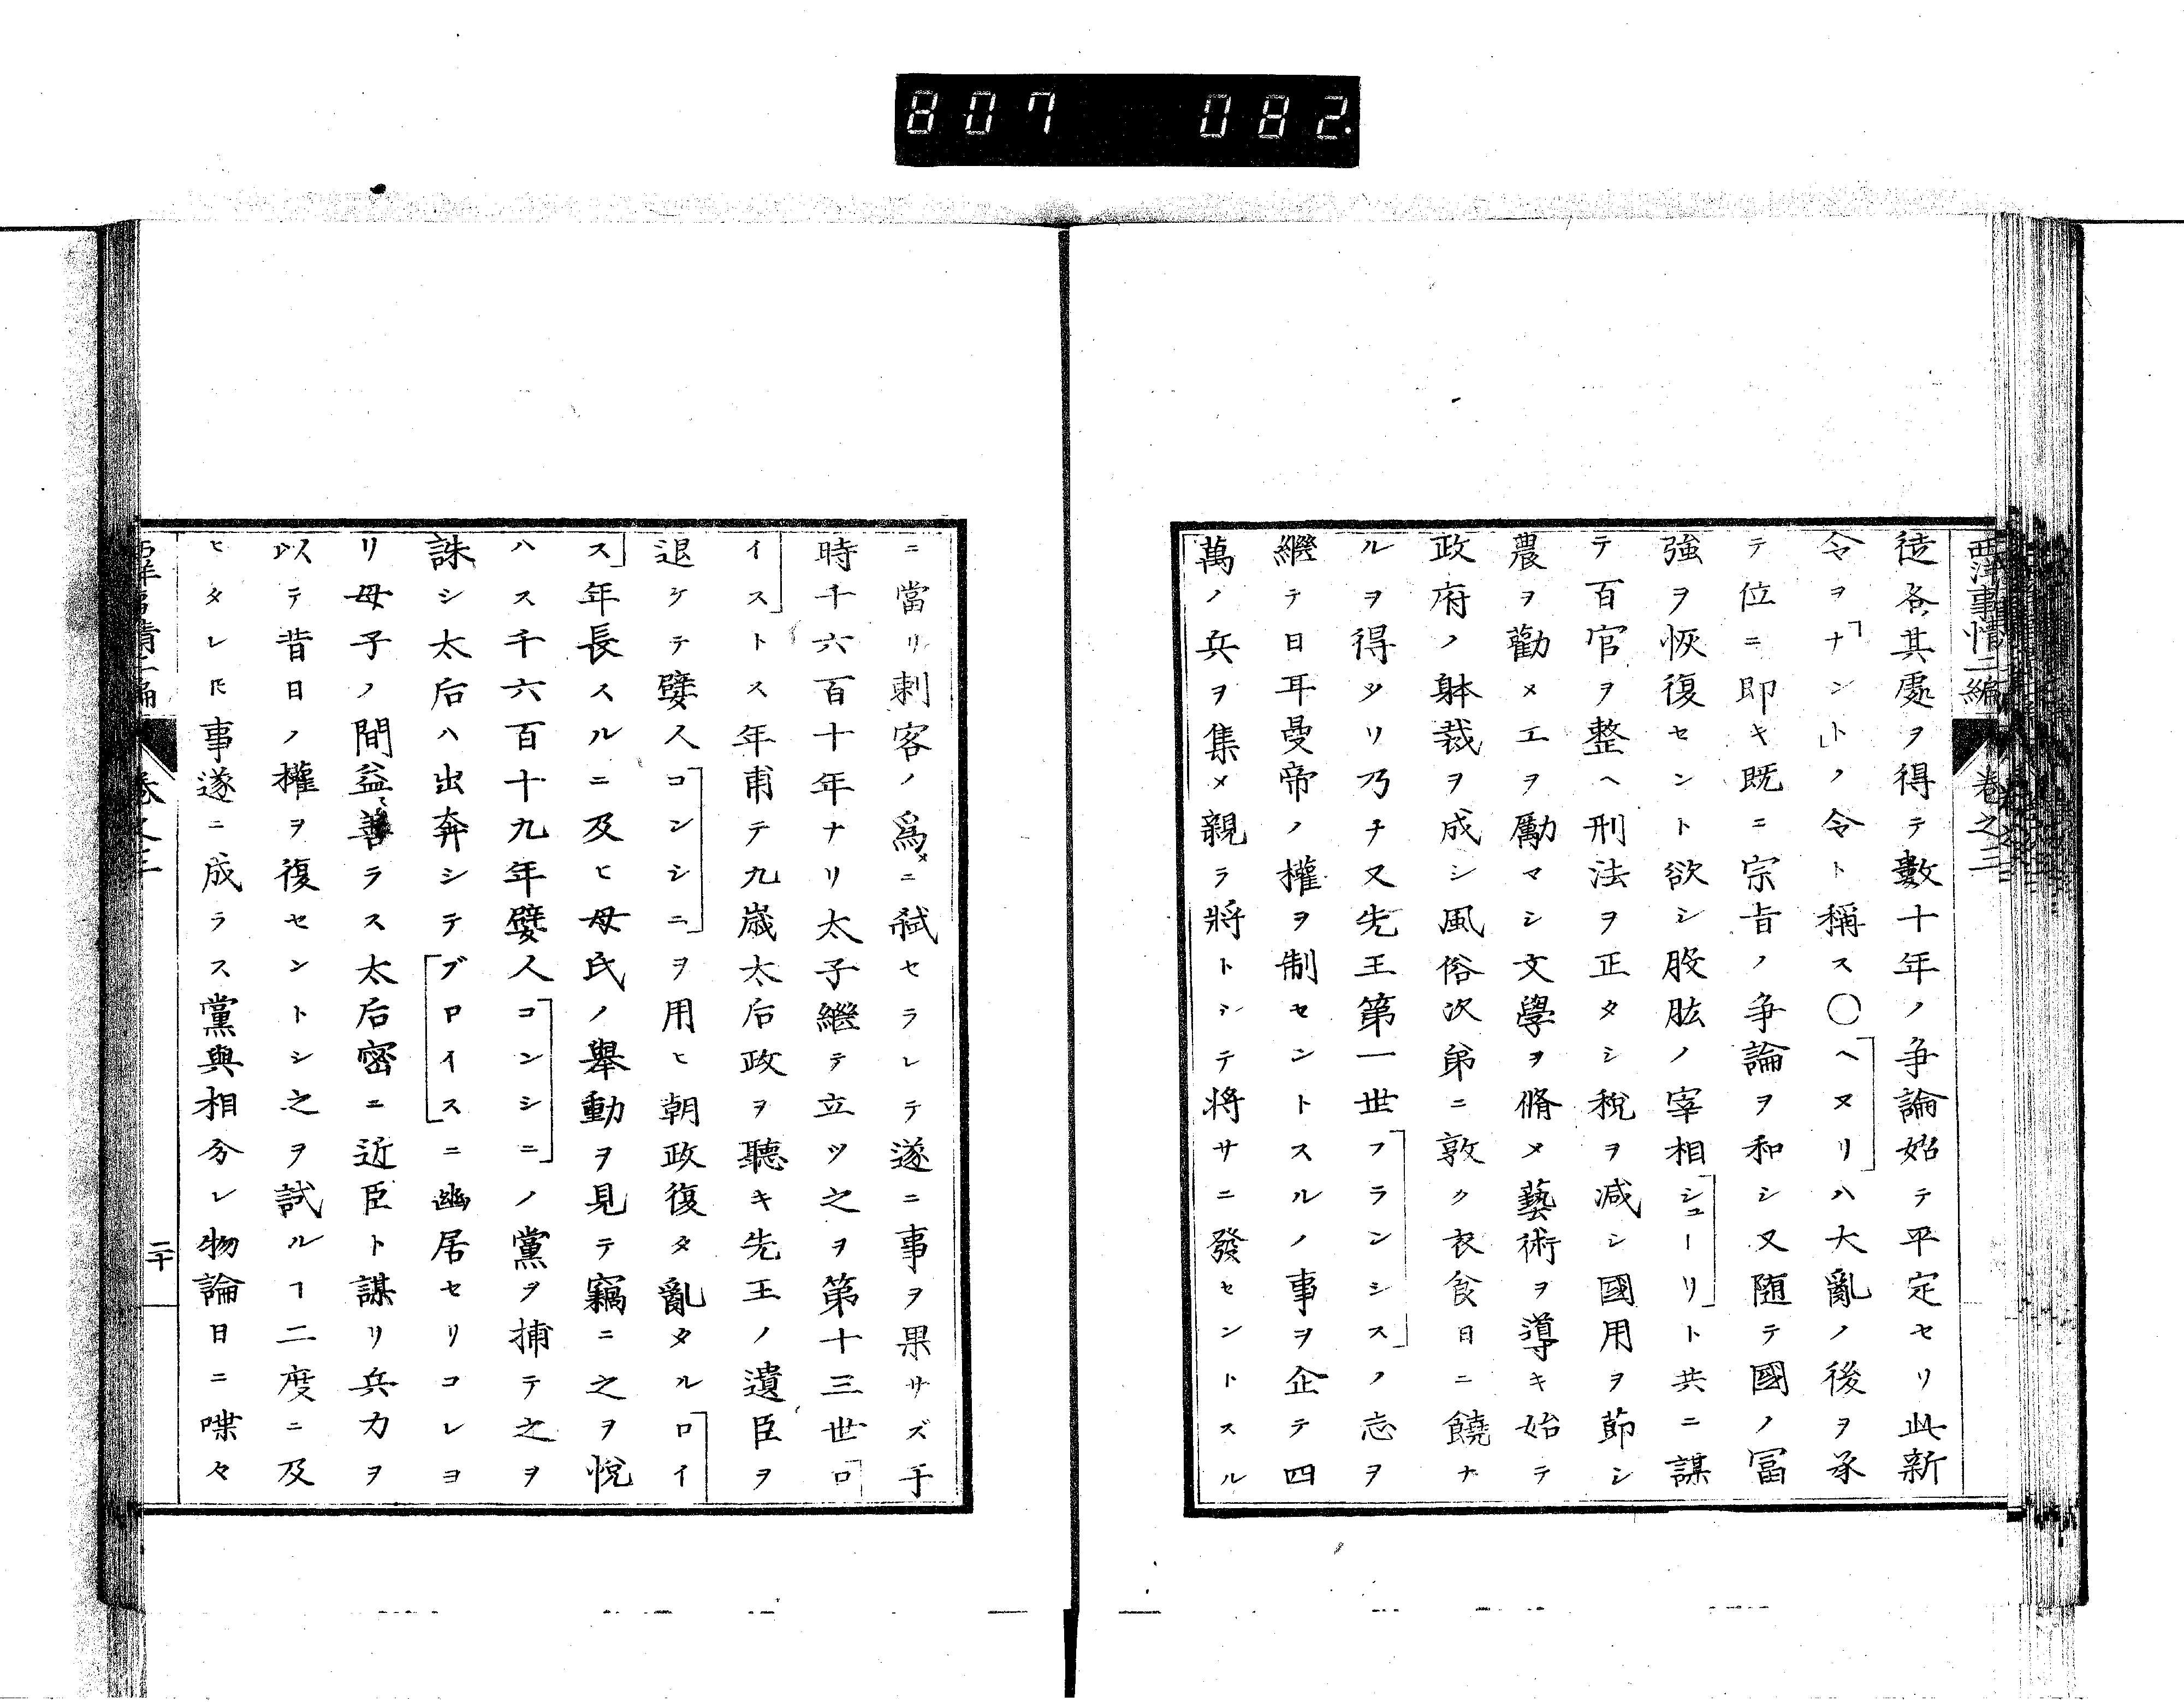 807 082
西洋事情二編 卷之三
徒各其處ヲ得テ數十年ノ争論始テ平定セリ此新
令ヲ「ナント」ノ令ト稱ス○「ヘヌリ」ハ大亂ノ後ヲ承
テ位ニ即キ既ニ宗旨ノ争論ヲ和シ又随テ國ノ冨
強ヲ恢復セント欲シ股肱ノ宰相「シューリ」ト共ニ謀
テ百官ヲ整ヘ刑法ヲ正タシ税ヲ減シ國用ヲ節シ
農ヲ勸メ工ヲ勵マシ文學ヲ脩メ藝術ヲ導キ始テ
政府ノ躰裁ヲ成シ風俗次第ニ敦ク衣食日ニ饒ナ
ルヲ得タリ乃チ又先王第一世「フランシス」ノ志ヲ
繼テ日耳曼帝ノ權ヲ制セントスルノ事ヲ企テ四
萬ノ兵ヲ集メ親ラ將トシテ将サニ發セントスル
ニ當リ刺客ノ爲メニ弑セラレテ遂ニ事ヲ果サズ于
時千六百十年ナリ太子繼テ立ツ之ヲ第十三世「ロ
イス」トス年甫テ九歳太后政ヲ聽キ先王ノ遺臣ヲ
退ケテ嬖人「コンシニ」ヲ用ヒ朝政復タ亂タル「ロイ
ス」年長スルニ及ヒ母氏ノ舉動ヲ見テ竊ニ之ヲ悅
ハス千六百十九年嬖人「コンシニ」ノ黨ヲ捕テ之ヲ
誅シ太后ハ出奔シテ「ブロイス」ニ幽居セリコレヨ
リ母子ノ間益〻善ラス太后密ニ近臣ト謀リ兵力ヲ
以テ昔日ノ權ヲ復セントシ之ヲ試ルヿ二度ニ及
ヒタレ𪜈事遂ニ成ラス黨與相分レ物論日ニ喋々
西洋事情二編 卷之三 二十